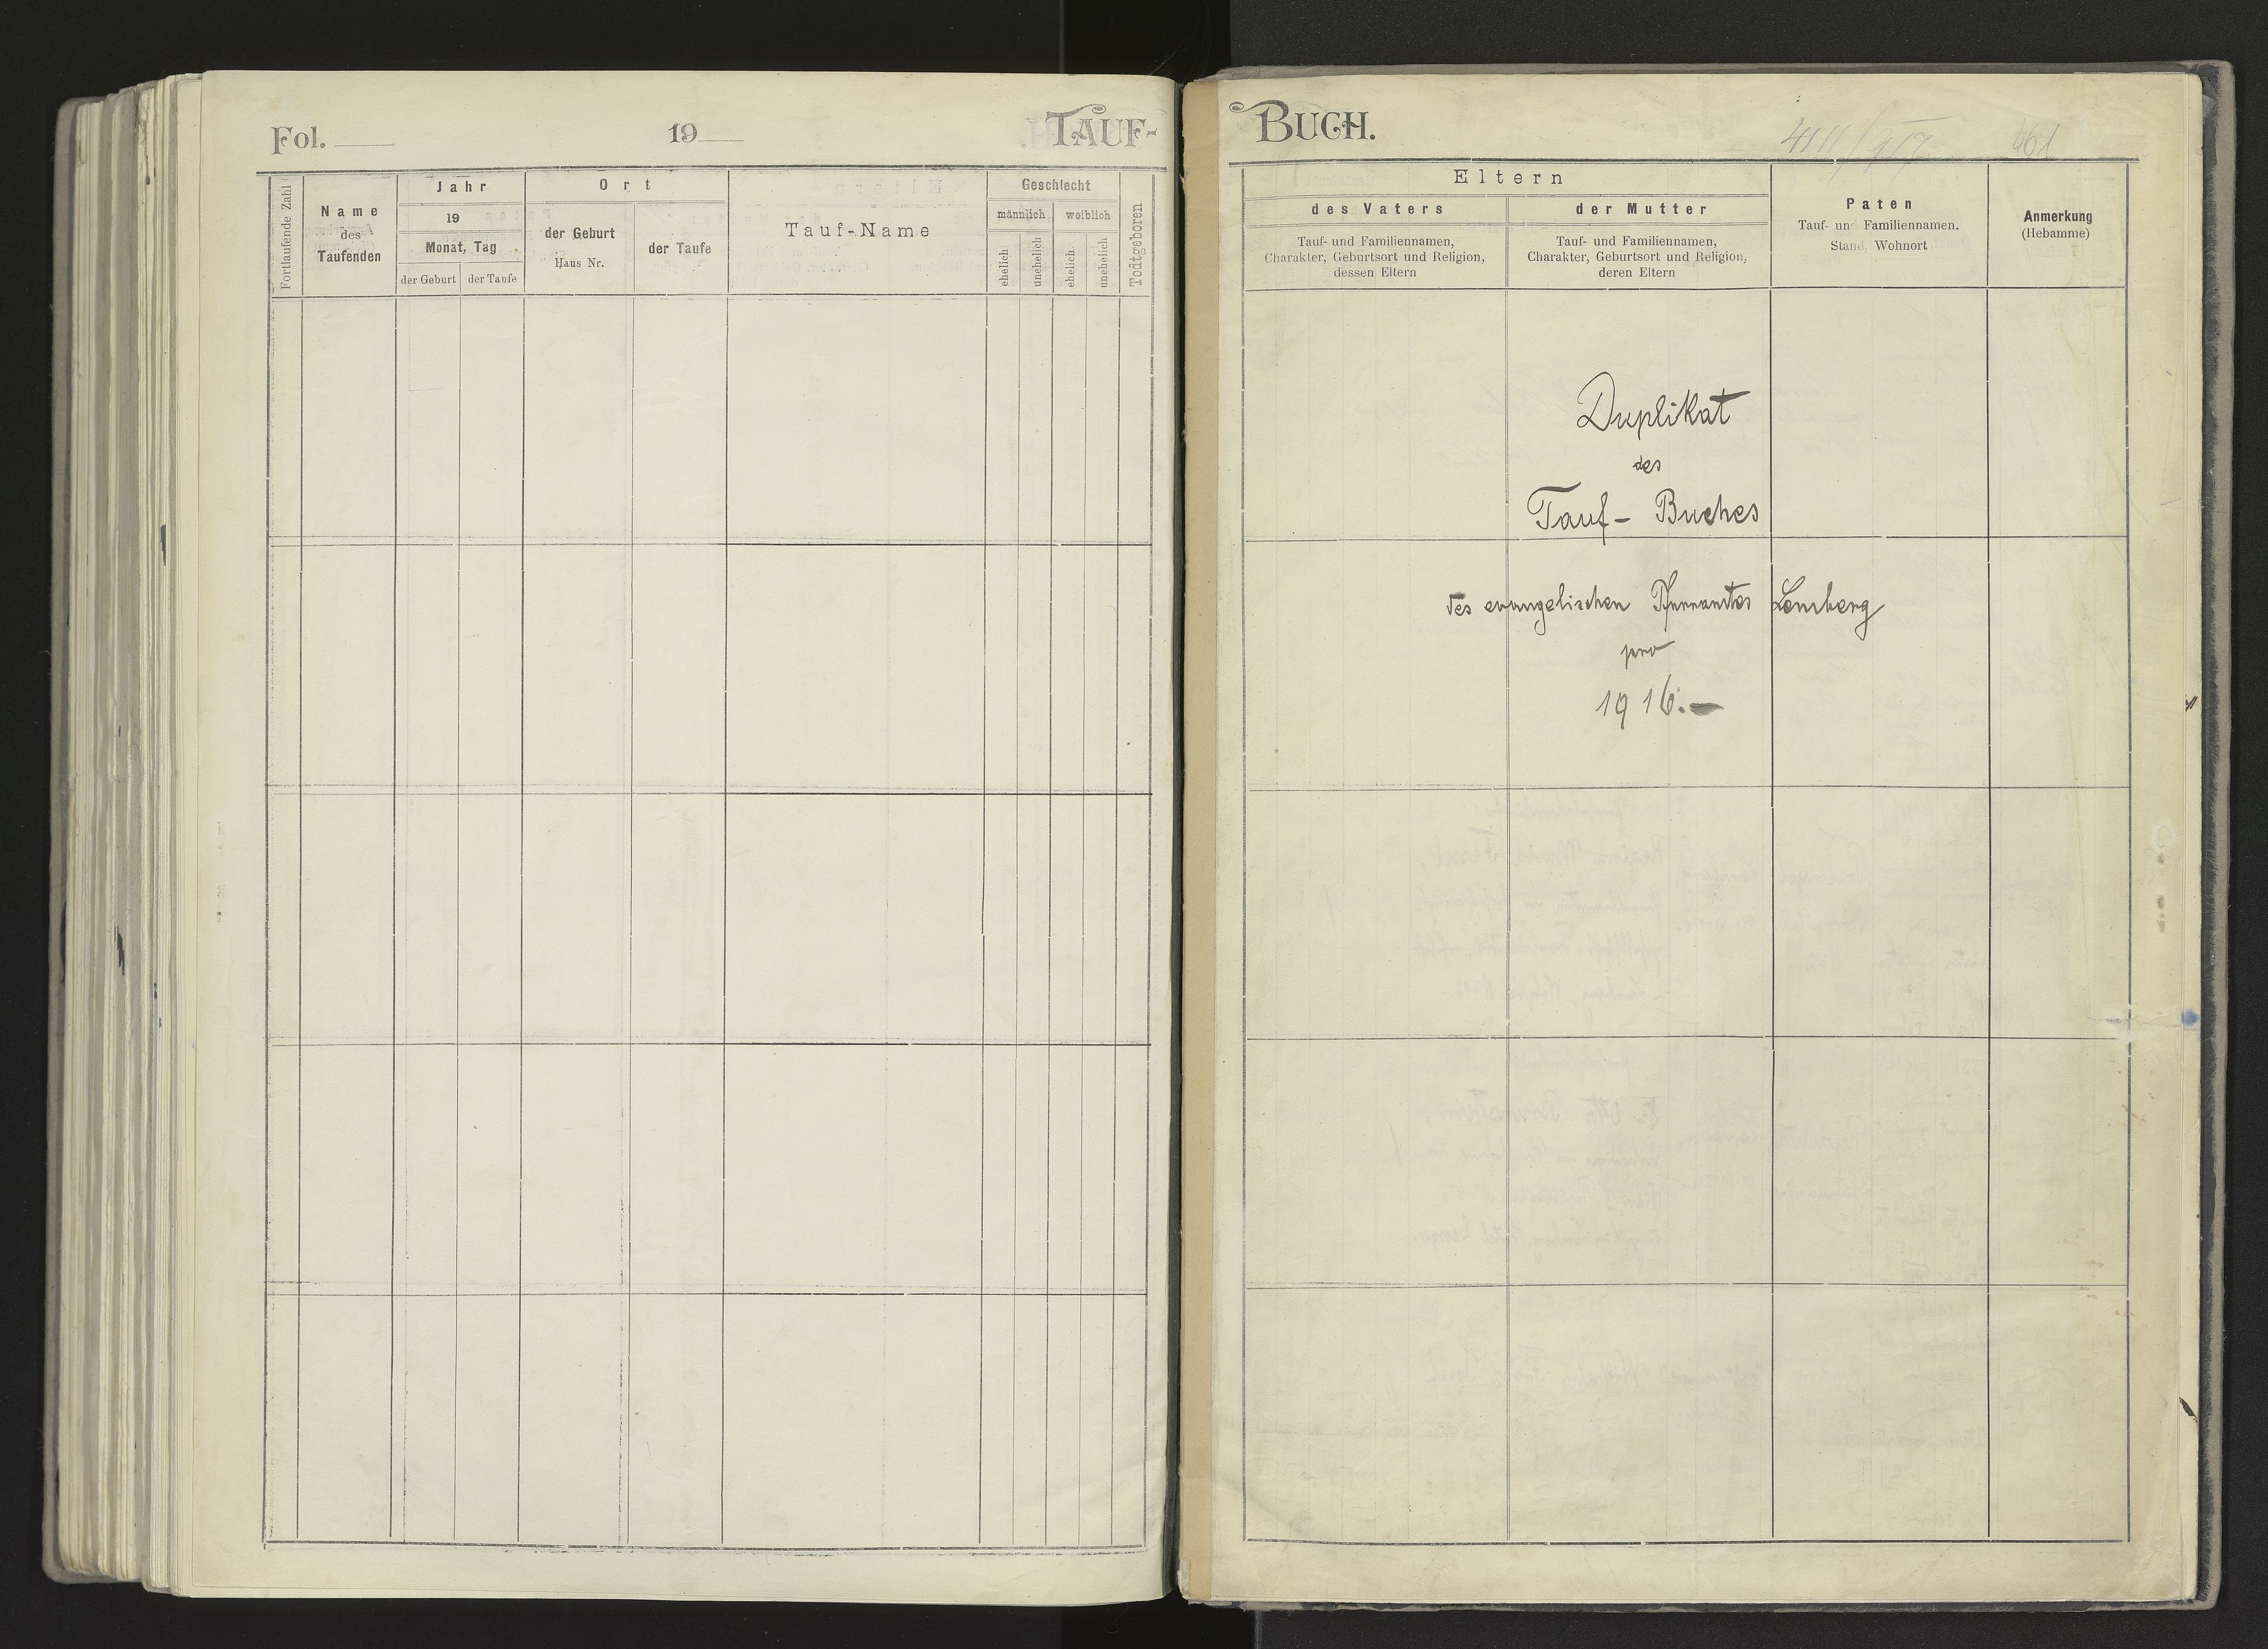 Fol. 19 TAUF-
Fortlaufende Zahl
Name
des
Taufenden
Jahr
19
Monat, Tag
der Geburt der Taufe
Ort
der Geburt
Haus Nr.
der Taufe
Tauf-Name
Geschlecht
männlich weiblich
ehelich unehelich ehelich unehelich
Todtgeboren
BUCH.
461
Eltern
des Vaters
Tauf- und Familiennamen,
Charakter, Geburtsort und Religion,
dessen Eltern
der Mutter
Tauf- und Familiennamen,
Charakter, Geburtsort und Religion,
deren Eltern
Paten
Tauf- und Familiennamen.
Stand, Wohnort
Anmerkung
(Hebamme)
Duplikat
des
Tauf- Buches
des evangelischen Pfarramtes Lemberg
pro
1916.-